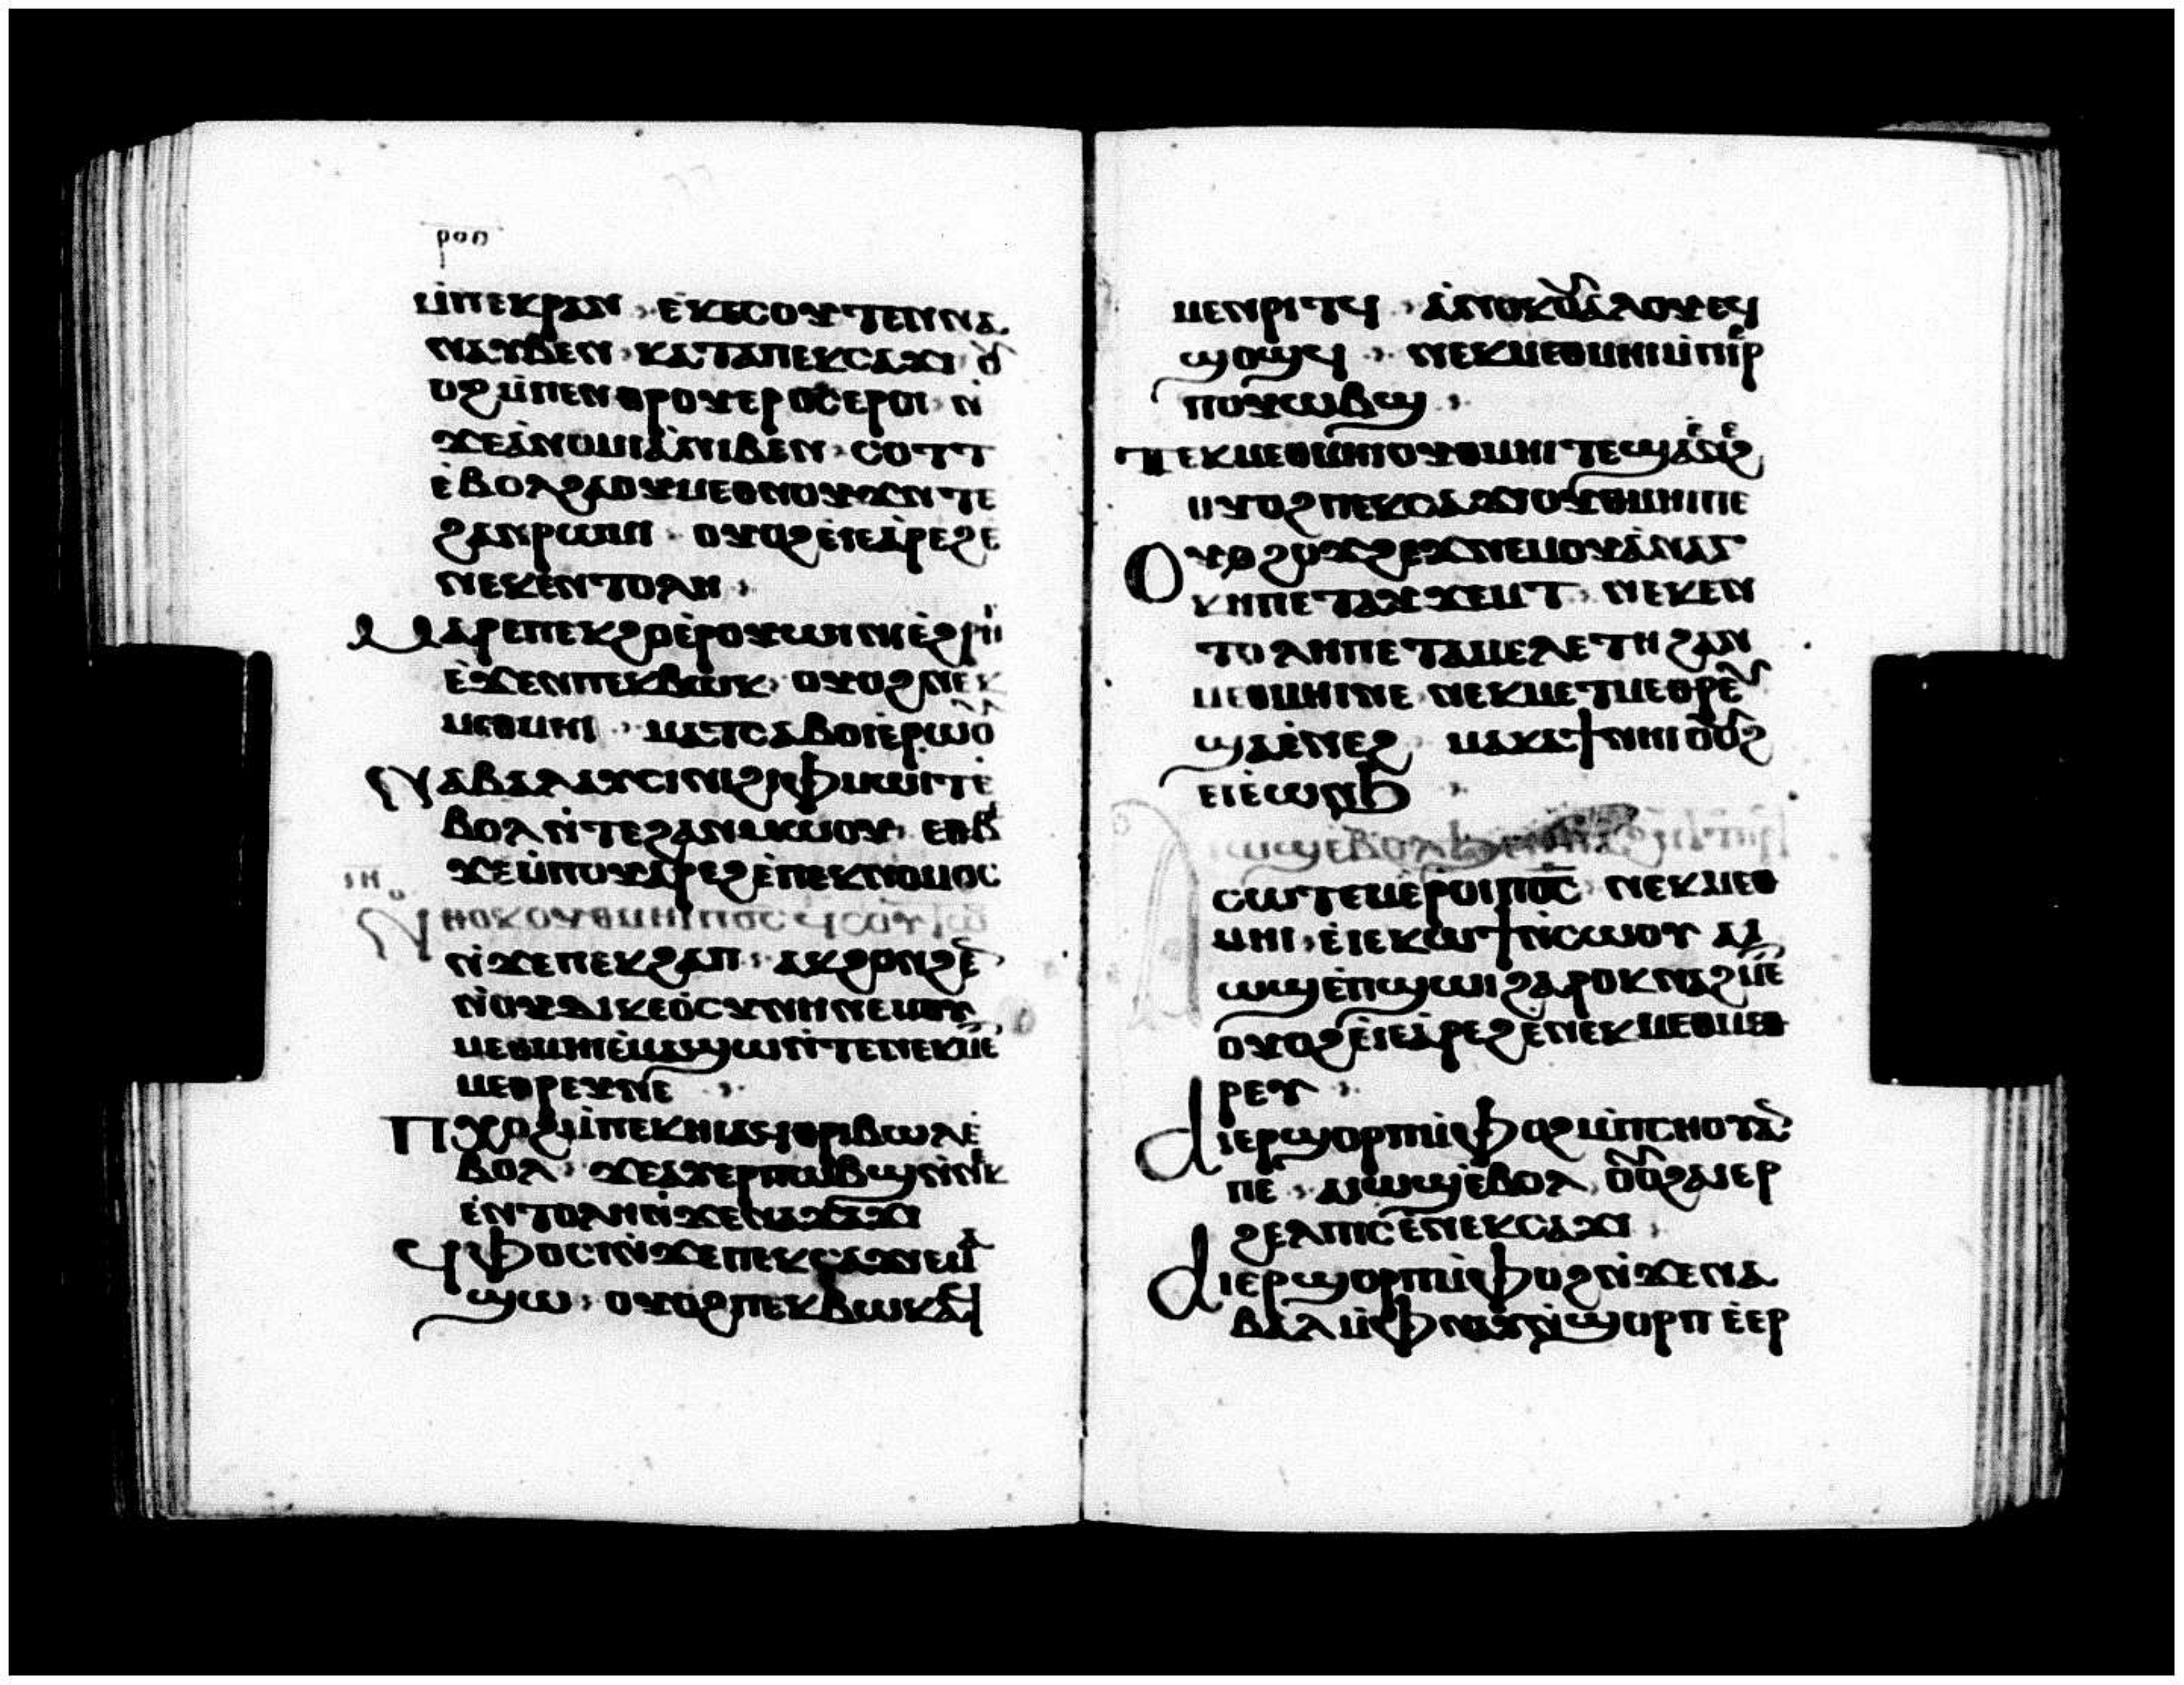 ⲣⲟⲏ
ⲙ̇ⲡⲉⲕⲣⲁⲛ ⲉⲕⲉⲥⲟⲩⲧⲉⲛⲛⲁ
ⲛⲁⲩⲃⲉⲛ ⲕⲁⲧⲁⲡⲉⲕⲥⲁϫⲓ ⲟ
ⲩⲟϩⲙ̇ⲡⲉⲛⲑⲣⲟⲩⲉⲣⲟ̄ⲥ̄ⲉⲣⲟⲓ ⲛ̇
ϫⲉⲁ̇ⲛⲟⲙⲓⲁ̇ⲛⲓⲃⲉⲛ ⲥⲟⲧⲧ
ⲉ̇ⲃⲟⲗϩⲁⲟⲩⲙⲉⲑⲛⲟⲩϫⲛ̇ⲧⲉ
ϩⲁⲛⲣⲱⲙⲓ ⲟⲩⲟϩⲉ̇ⲓⲉⲁ̇ⲣⲉϩⲉ
ⲛⲉⲕⲉ̇ⲛⲧⲟⲗⲏ
Ⲙⲁⲣⲉⲡⲉⲕϩⲟⲉ̇ⲣⲟⲩⲱⲓⲛⲓⲉ̇ϩⲣⲏⲓ
ⲉ̇ϫⲉⲛⲡⲉⲕⲃⲱⲕ ⲟⲩⲟϩⲛⲉⲕ
ⲙⲉⲑⲙⲏⲓ ⲙⲁⲧⲥⲁⲃⲟⲓⲉ̇ⲣⲱⲟⲩ
Ⲛⲁⲃⲁⲗⲁⲩⲥⲓⲛⲓϩⲓⲫⲙⲱⲓⲧⲉ
ⲃⲟⲗⲛ̇ⲧⲉϩⲁⲛⲙⲱⲟⲩ ⲉⲑⲃ
ϫⲉⲙ̇ⲡⲟⲩⲁ̇ⲣⲉϩⲉ̇ⲡⲉⲕⲛⲟⲙⲟⲥ
ⲓⲏ
Ⲛⲑⲟⲕⲟⲩⲑⲙⲏⲓⲡⲟ̅ⲥ̅ ϥⲥⲟⲩⲧⲱ
ⲛ̇ϫⲉⲡⲉⲕϩⲁⲡ ⲁⲕϩⲟⲛϩⲉⲛ
ⲛ̇ⲟⲩⲇⲓⲕⲉⲟ̇ⲥⲩⲛⲏⲛⲉⲙⲟⲩ
ⲙⲉⲑⲙⲏⲓⲉ̇ⲙⲁϣⲱⲛ̇ⲧⲉⲛⲉⲕⲙⲉ
ⲙⲉⲑⲣⲉⲩⲛⲉ
Ⲡⲭⲟϩⲙ̇ⲡⲉⲕⲏⲓⲁϥⲑⲣⲓⲃⲱⲗⲉ̇
ⲃⲟⲗ ϫⲉⲁⲩⲉⲣⲡⲱⲃϣⲛ̇ⲛⲉⲕ
ⲉⲛⲧⲟⲗⲏⲛ̇ϫⲉⲛⲁϫⲁϫⲓ
Ϥⲫⲟⲥⲓⲛ̇ϫⲉⲡⲉⲕⲥⲁϫⲓⲉⲙⲁ
ϣⲱ ⲟⲩⲟϩⲡⲉⲕⲃⲱⲕⲁϥ
ⲙⲉⲛⲣⲓⲧϥ ⲁ̇ⲛⲟⲕⲟⲩⲁ̇ⲗⲟⲩⲉϥ
ϣⲟϣϥ ⲛⲉⲕⲙⲉⲑⲙⲏⲓⲙ̇ⲡⲓⲉⲣ
ⲡⲟⲩⲱⲃϣ
Ⲧⲉⲕⲙⲉⲑⲙⲏⲓⲟⲩⲑⲙⲏⲓⲧⲉϣⲁⲉⲛⲉϩ
ⲟⲩⲟϩⲡⲉⲕⲥⲁϫⲓⲟⲩⲑⲙⲏⲓⲡⲉ
Ⲟⲩϩⲟϫϩⲉϫⲛⲉⲙⲟⲩⲁ̇ⲛⲁⲅ
ⲕⲏⲡⲉⲧⲁⲩϫⲉⲙⲧ ⲛⲉⲕⲉⲛ
ⲧⲟⲗⲏⲡⲉⲧⲁⲙⲉⲗⲉⲧⲏ ϩⲁⲛ
ⲙⲉⲑⲙⲏⲓⲛⲉ ⲛⲉⲕⲙⲉⲧⲙⲉⲑⲣⲉⲩ
ϣⲁⲉ̇ⲛⲉϩ ⲙⲁⲕⲁϯⲛⲏⲓ ⲟⲩⲟϩ
ⲉⲓⲉ̇ⲱⲛϧ
ⲓⲱϣⲉⲃⲟⲗϧⲉⲛ
ⲥⲱⲧⲉⲙⲉ̇ⲣⲟⲓⲡⲟ̅ⲥ̅ ⲛⲉⲕⲙⲉⲑ
ⲙⲏⲓ ⲉ̇ⲓⲉⲕⲱϯⲛ̇ⲥⲱⲟⲩ ⲁⲓ
ⲱϣⲉ̇ⲡϣⲱⲓϩⲁⲣⲟⲕⲛⲁϩⲙⲉ
ⲟⲩⲟϩⲉ̇ⲓⲉⲁ̇ⲣⲉϩⲉ̇ⲛⲉⲕⲙⲉⲑⲙⲉⲑ
ⲣⲉⲩ
Ⲁⲓⲉⲣϣⲟⲣⲡⲙ̇ⲫⲟϩⲙ̇ⲡⲥⲏⲟⲩⲁⲛ
ⲡⲉ ⲁⲓⲱϣⲉ̇ⲃⲟⲗ ⲟⲩⲟϩⲁⲓⲉⲣ
ϩⲉⲗⲡⲓⲥⲉ̇ⲛⲉⲕⲥⲁϫⲓ
Ⲁⲓⲉⲣϣⲟⲣⲡⲙ̇ⲫⲟϩⲛ̇ϫⲉⲛⲁ
ⲃⲁⲗⲙ̇ⲫⲛⲁⲩⲛ̇ϣⲟⲣⲡ ⲉ̇ⲉⲣ